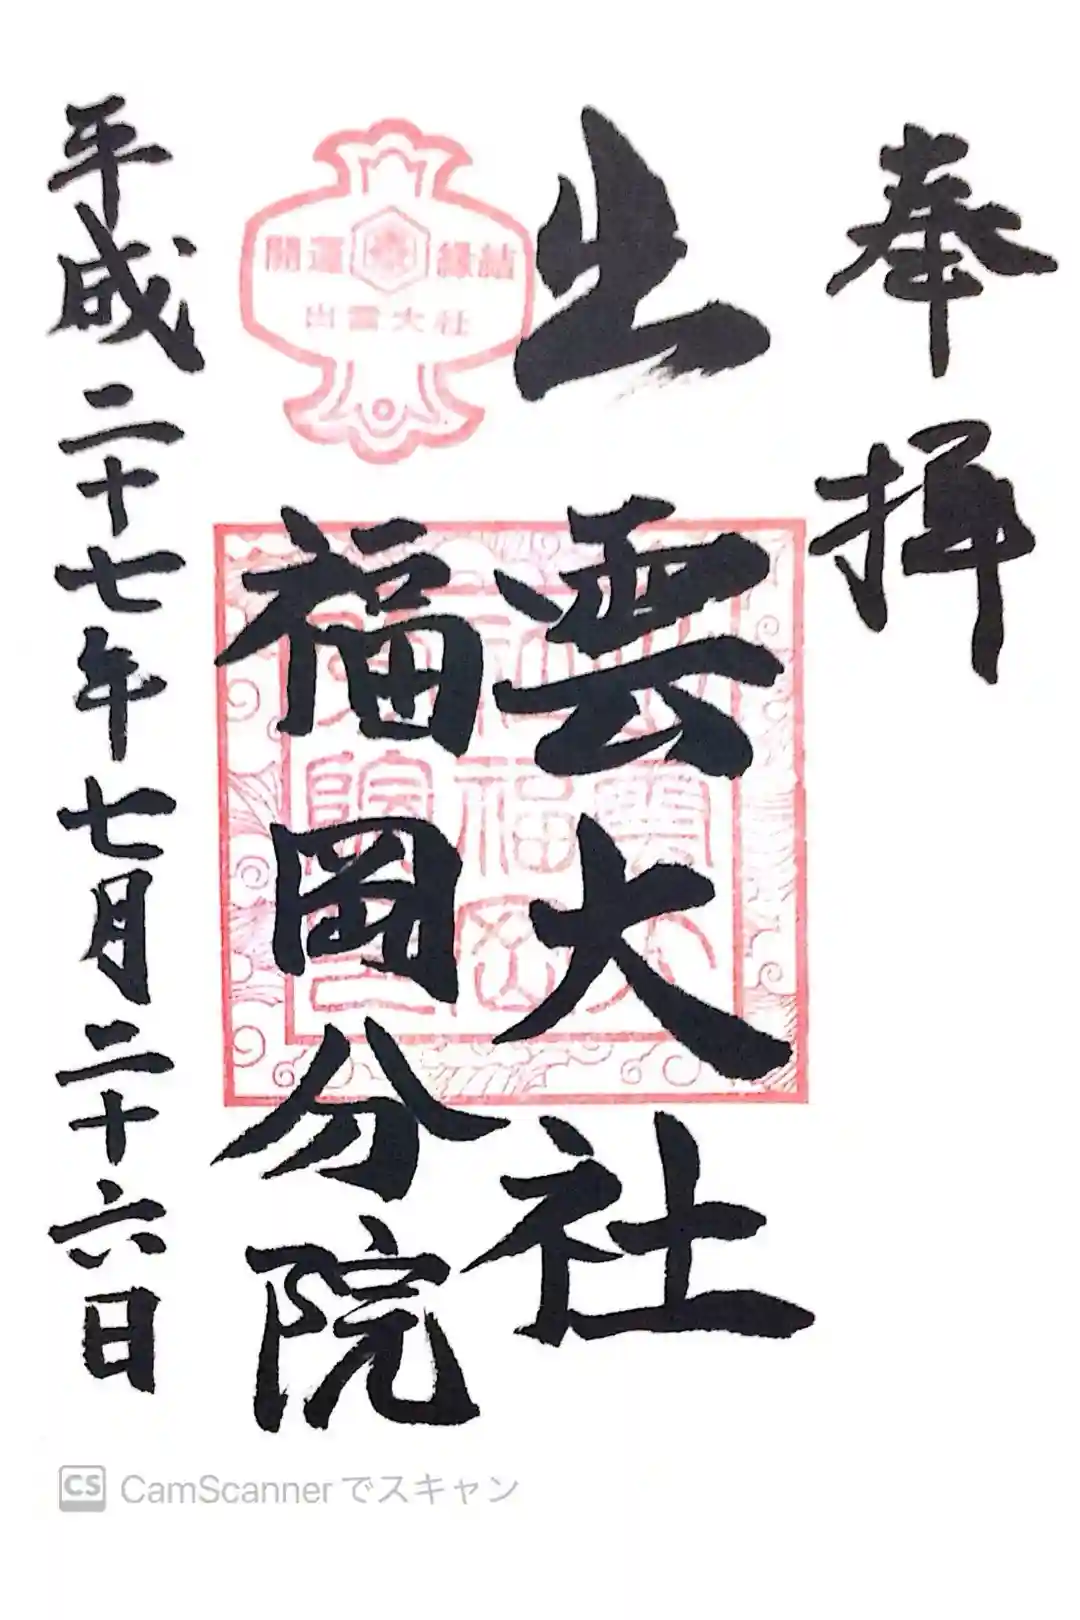 奉拝
出雲大社
福岡分院
平成二十七年七月二十六日
開運 縁結
出雲大社
出雲大社福岡分院
CS CamScannerでスキャン